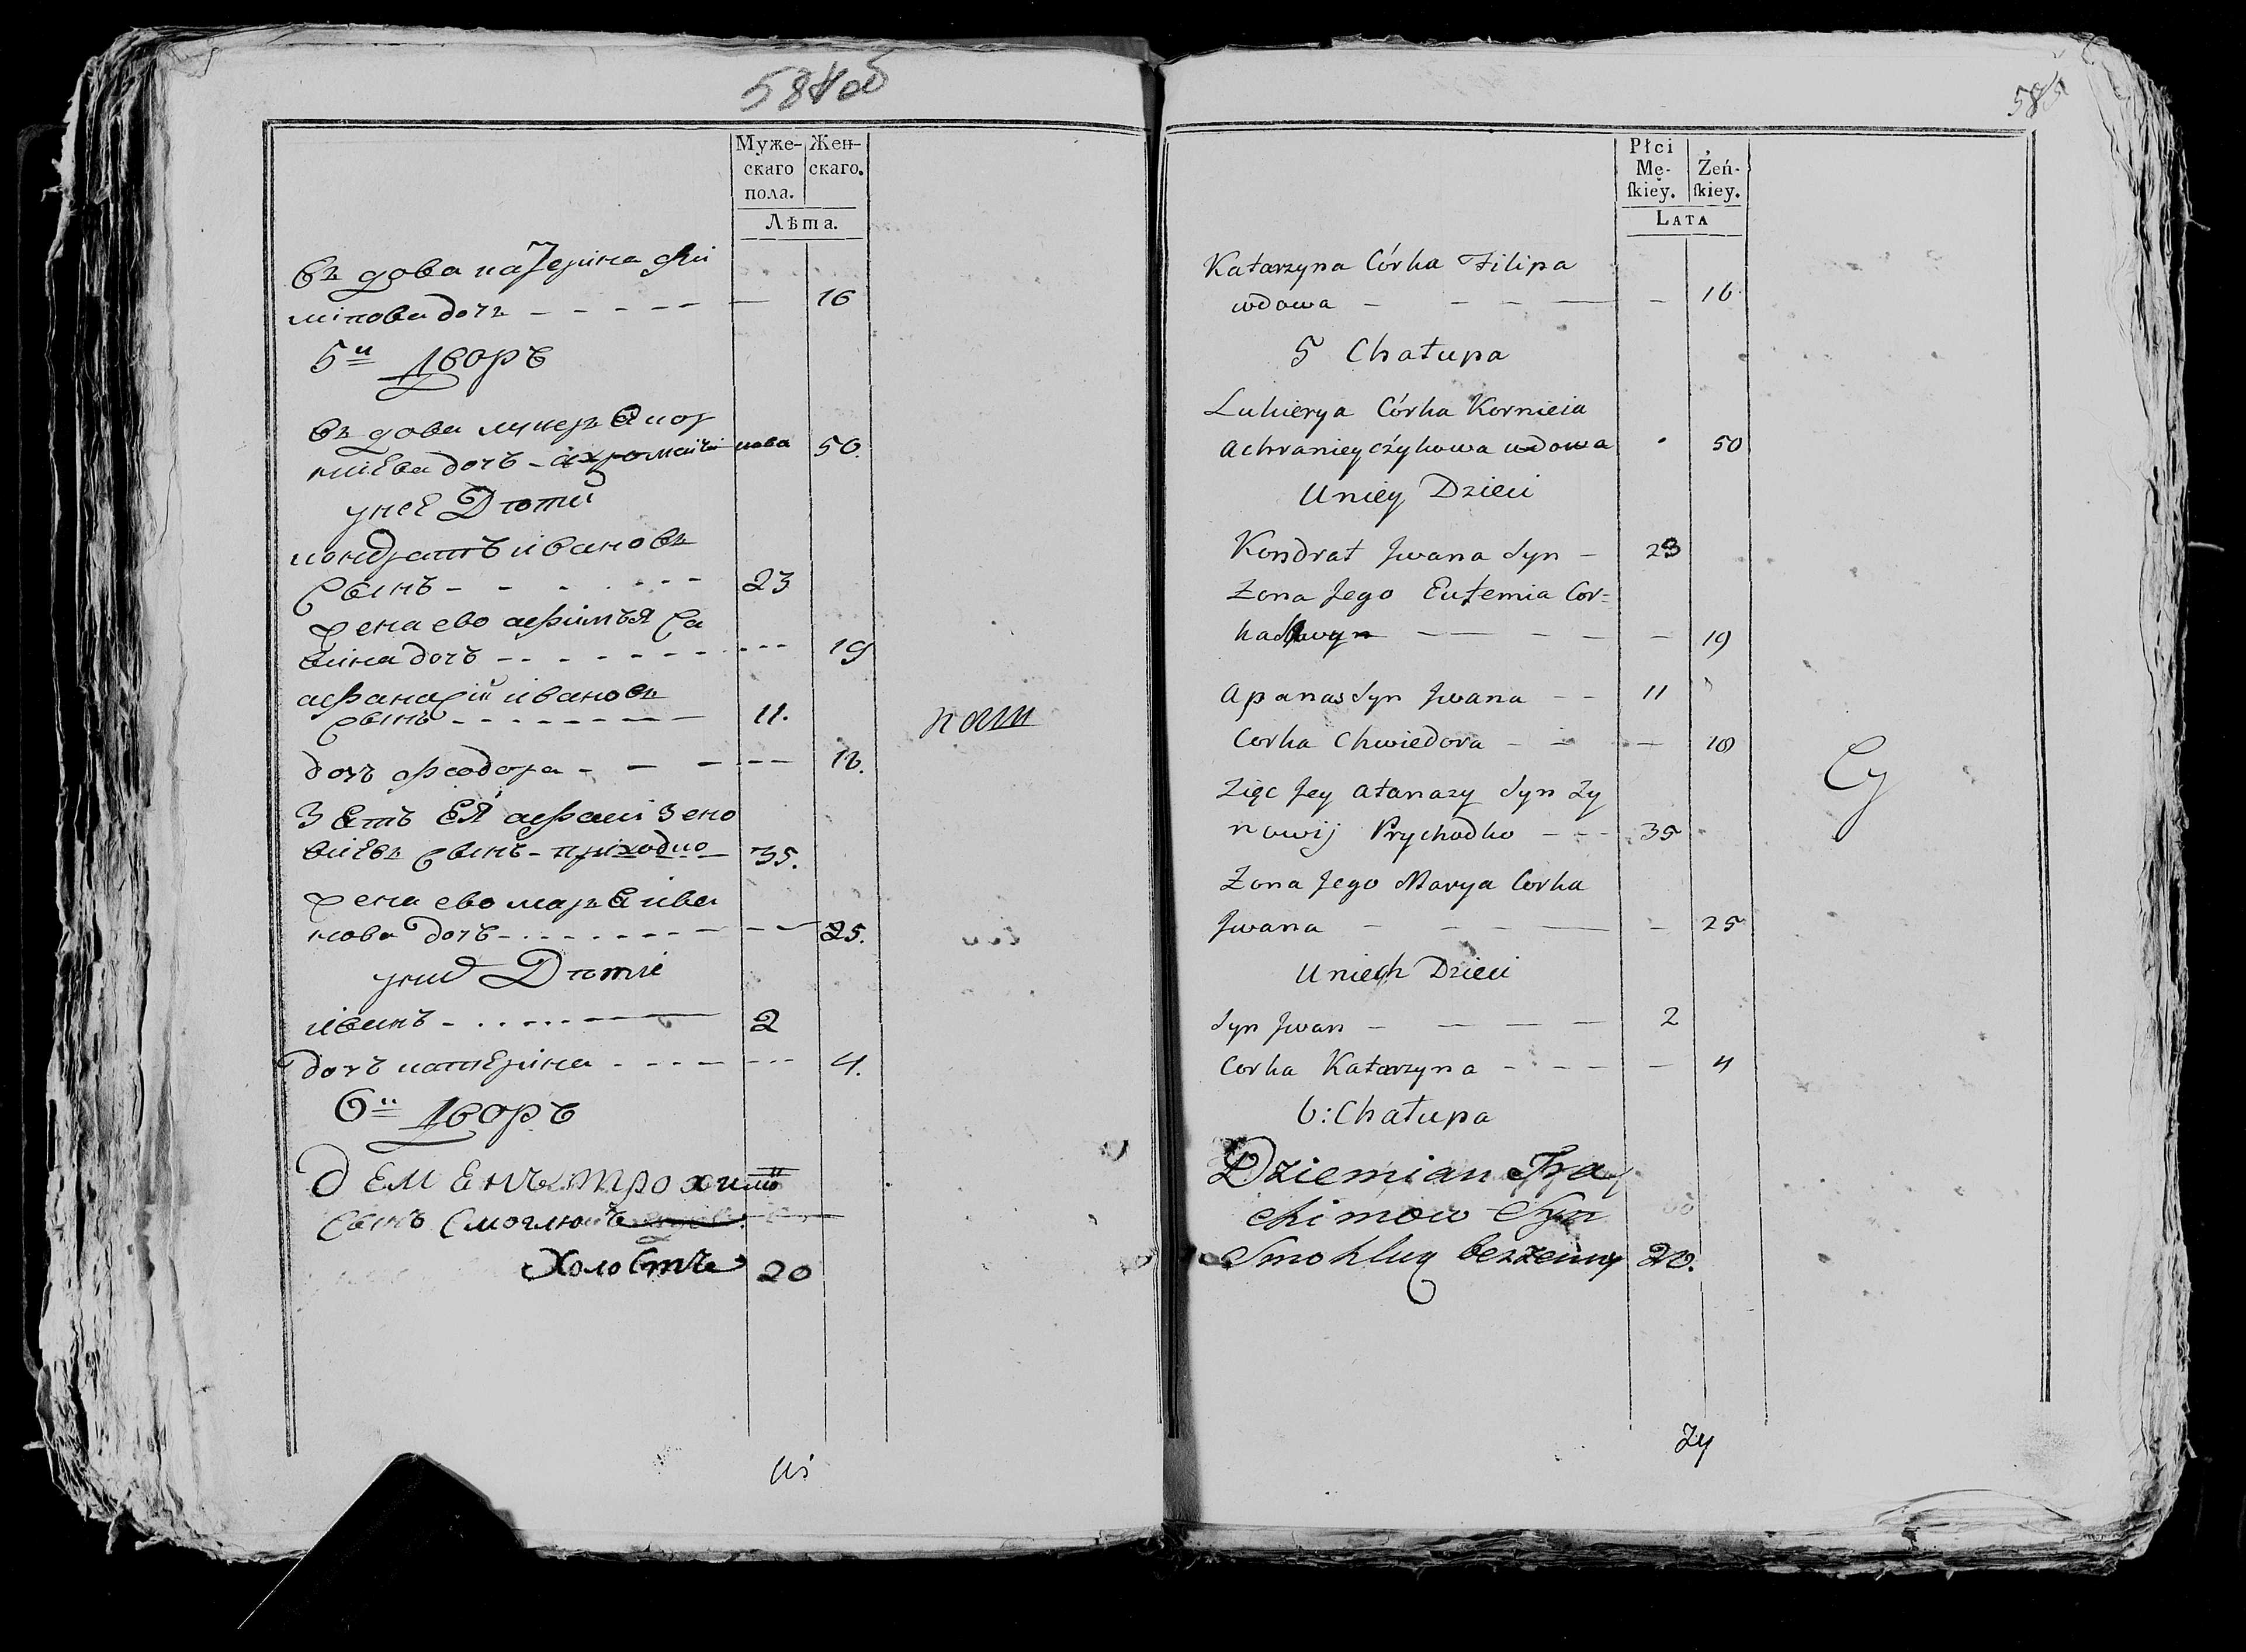 584 об
Муже-
скаго
пола.
Жен-
скаго.
Лѣта.
въдова катерина фи
липова дочъ - - - - - — 16
5й Дворъ
въдова лукеръя кор
нпева дочъ - ахромейчикова 50.
унее Дѣти
кондратъ ивановъ
сынъ - - - - - - - 23
жена ево афимъя са
вина дочъ - - - - - - - - - 19
афанасій ивановъ
сынъ - - - - - - - — 11.
дочъ феодора - — - — - — 18.
Зеть ЕЯ афанасі Зено
віевъ сынъ - приходко — 35.
жена ево маръя ива
нова дочъ - - - - - - - - — 25.
уних Дѣти
іванъ - - - - - - - — 2
дочъ катерина - - - - - - - 4.
6й Дворъ
дементъ трохимов
сынъ Смоглюкъ
Холостъ 20
585
Płci
Mę-
ſkiey.
Żeń-
ſkiey.
Lata
Katarzyna Córka Filipa
wdowa — - - - — - 16
5 Chałupa
Lukierya Córka Kornieia
Achranieyczykowa wdowa 50
Uniey Dzieci
Kondrat Jwana Syn - 23
Zona Jego Eufemia Cor=
ka Sawy - — - - - - 19
Apanas Syn Jwana - - 11
Corka Chwiedora - - - 18
Zięc Jey Atanazy Syn Zy
nowij Prychodko - - - 35
Zona Jego Marya Corka
Jwana — - - - — - 25
Uniech Dzieci
Syn Jwan - — - - - 2
Corka Katarzyna - - - - - 4
6: Chałupa
Dziemian Tra
chimow Syn
Smohluy bezzenny 20.